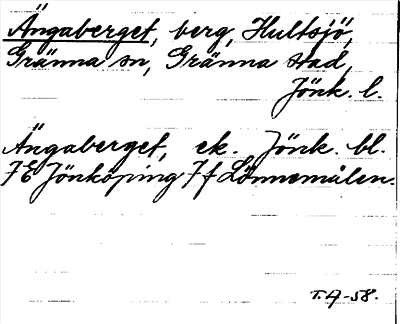 Ängaberget, berg, Hultsjö,
Gränna sn, Gränna stad,
Jönk. l.
Ängaberget, ek. Jönk. bl.
7E Jönköping 7f Lönnemålen.
T.A-58.